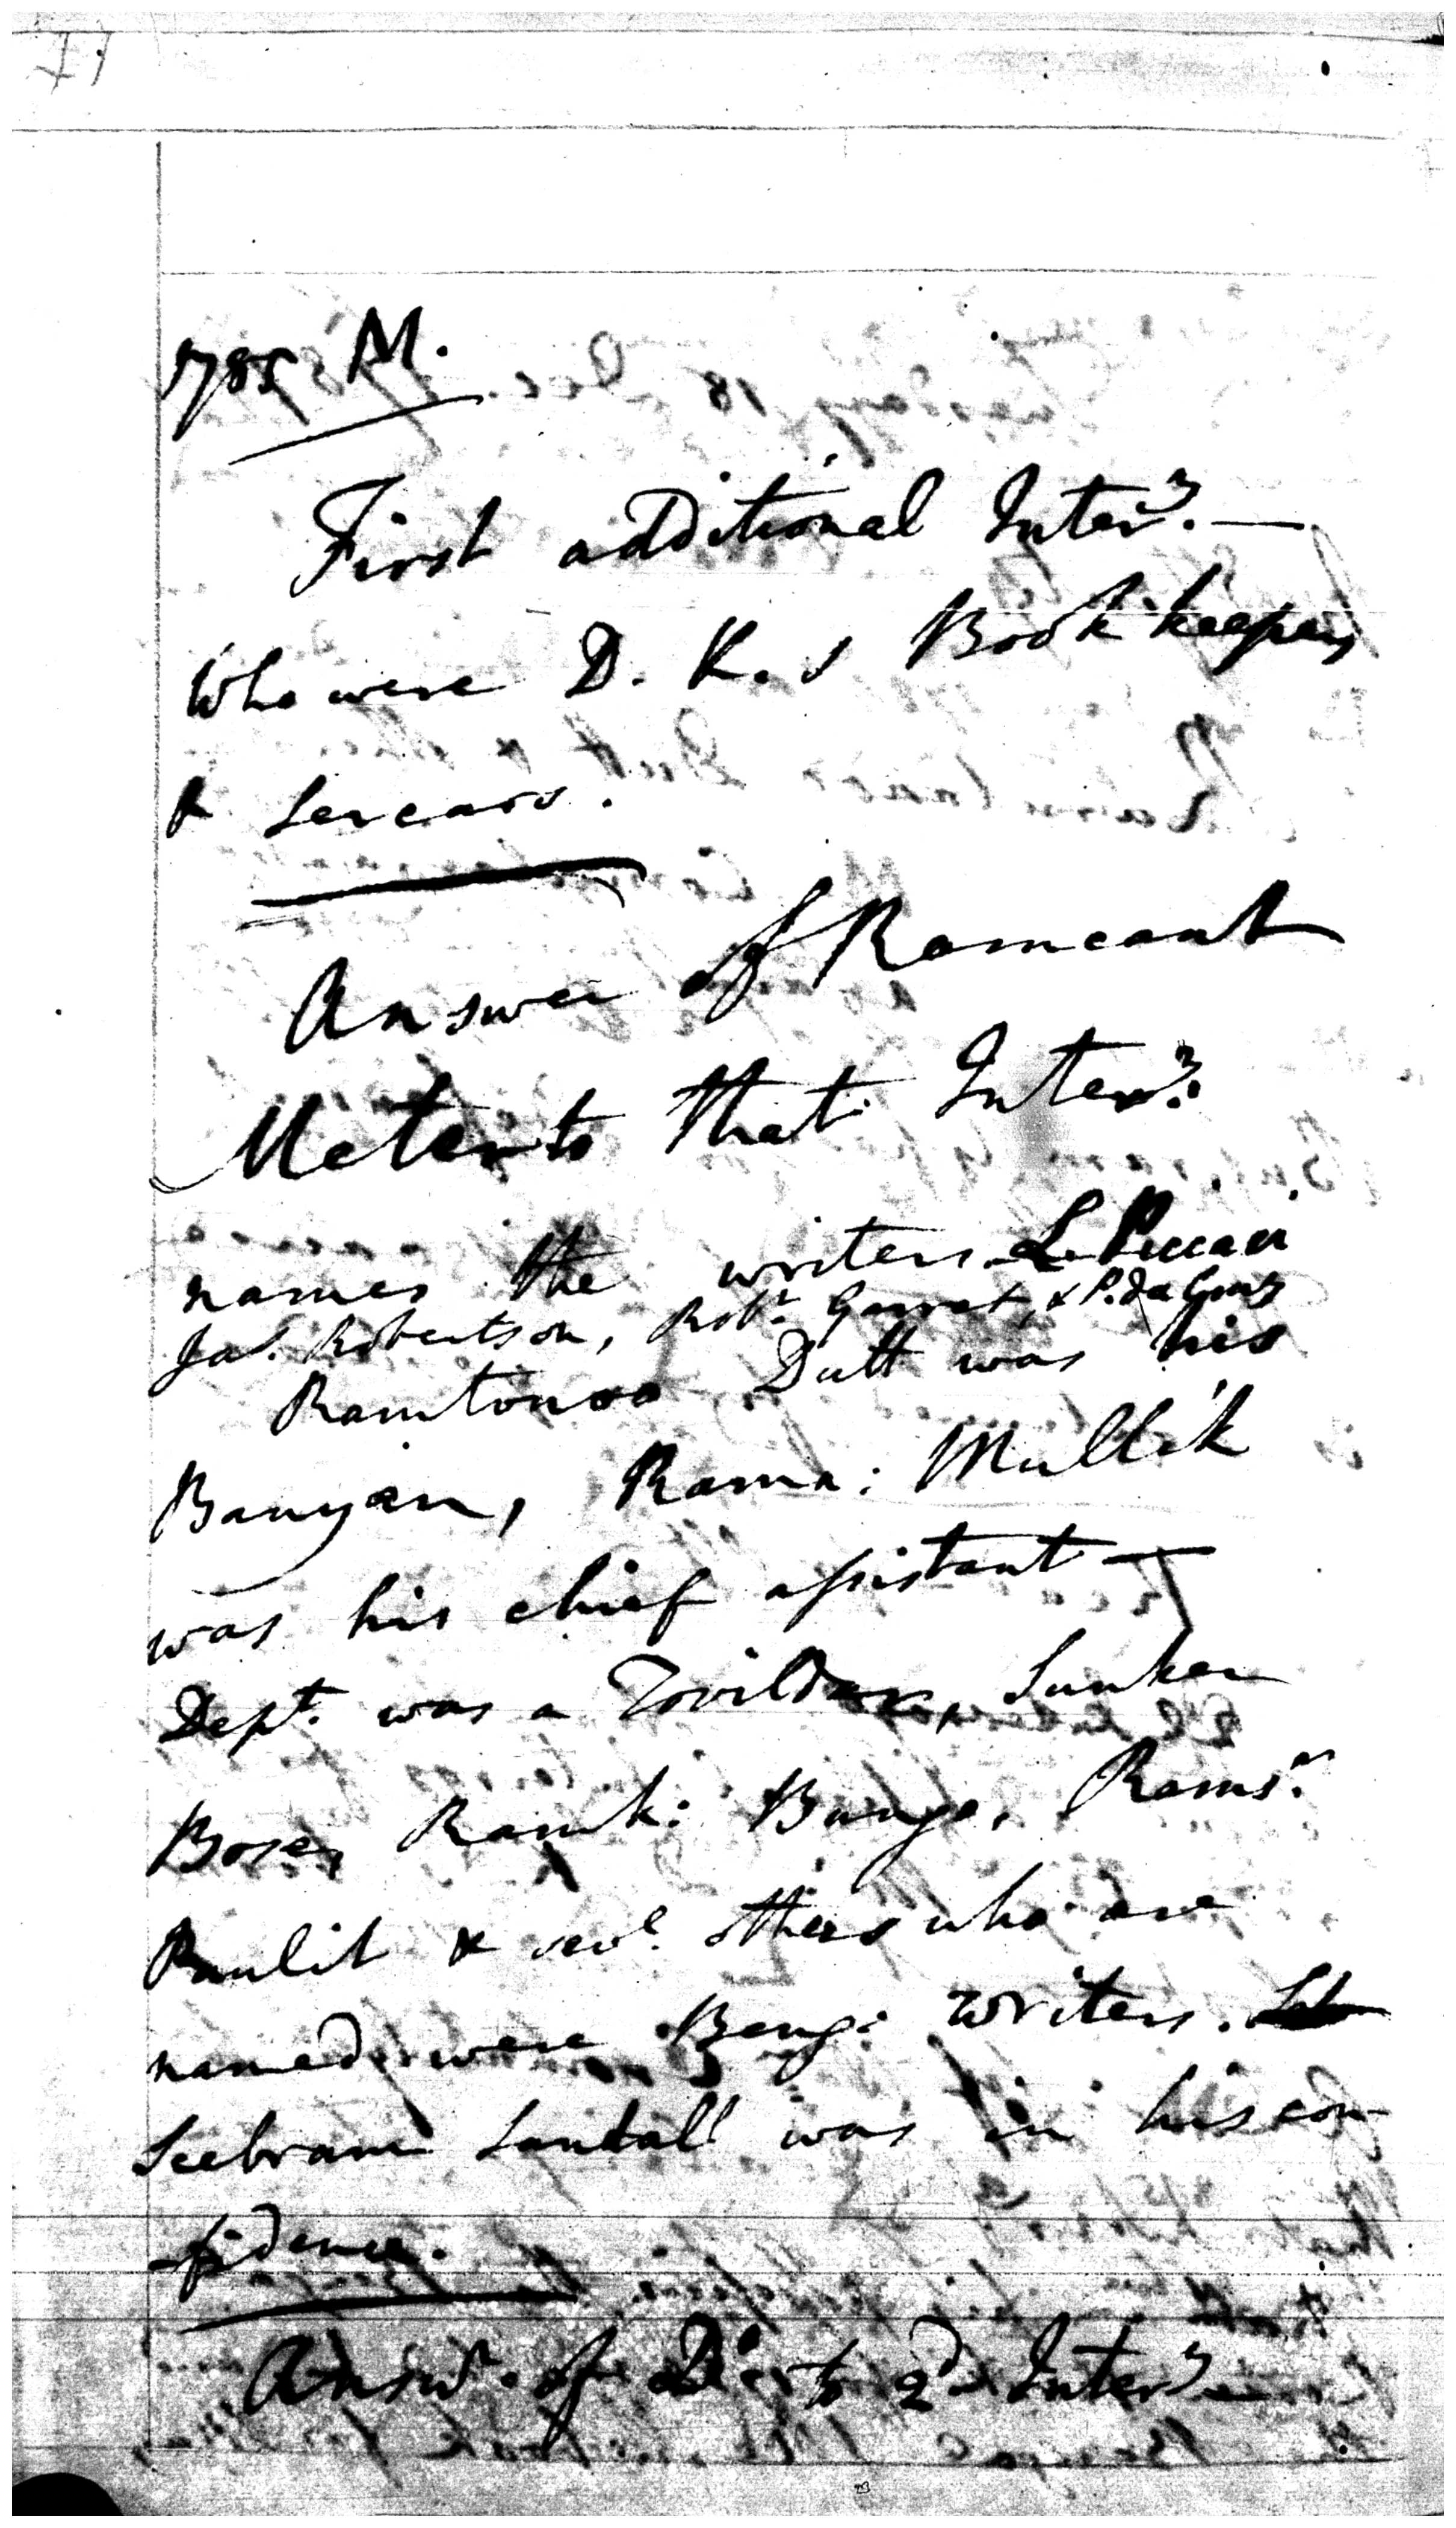 1785 M.
First additional Inter.ʸ —
Who were D. K.s Book keepers
& Sercars.
Answer of Ramcant
Meter to that Inter.ʸ
names the writers
Jaˢ. Robertson, Robᵗ. Garret, & P. da Cruz
Ramtonoo Dutt was his
Banyan, Rama: Mullik
was his chief assistant —
Dept. was a Tovildar, Sunker
Bose, Ramk: Bunge, Rams.ʳ
Paulit & sev.ˡ others who are
named were Beng: writers.
Seebram Sandall was in his con-
-fidence.
Answ.ʳ of Dᵒ. to 2.ᵈ Inter.ʸ